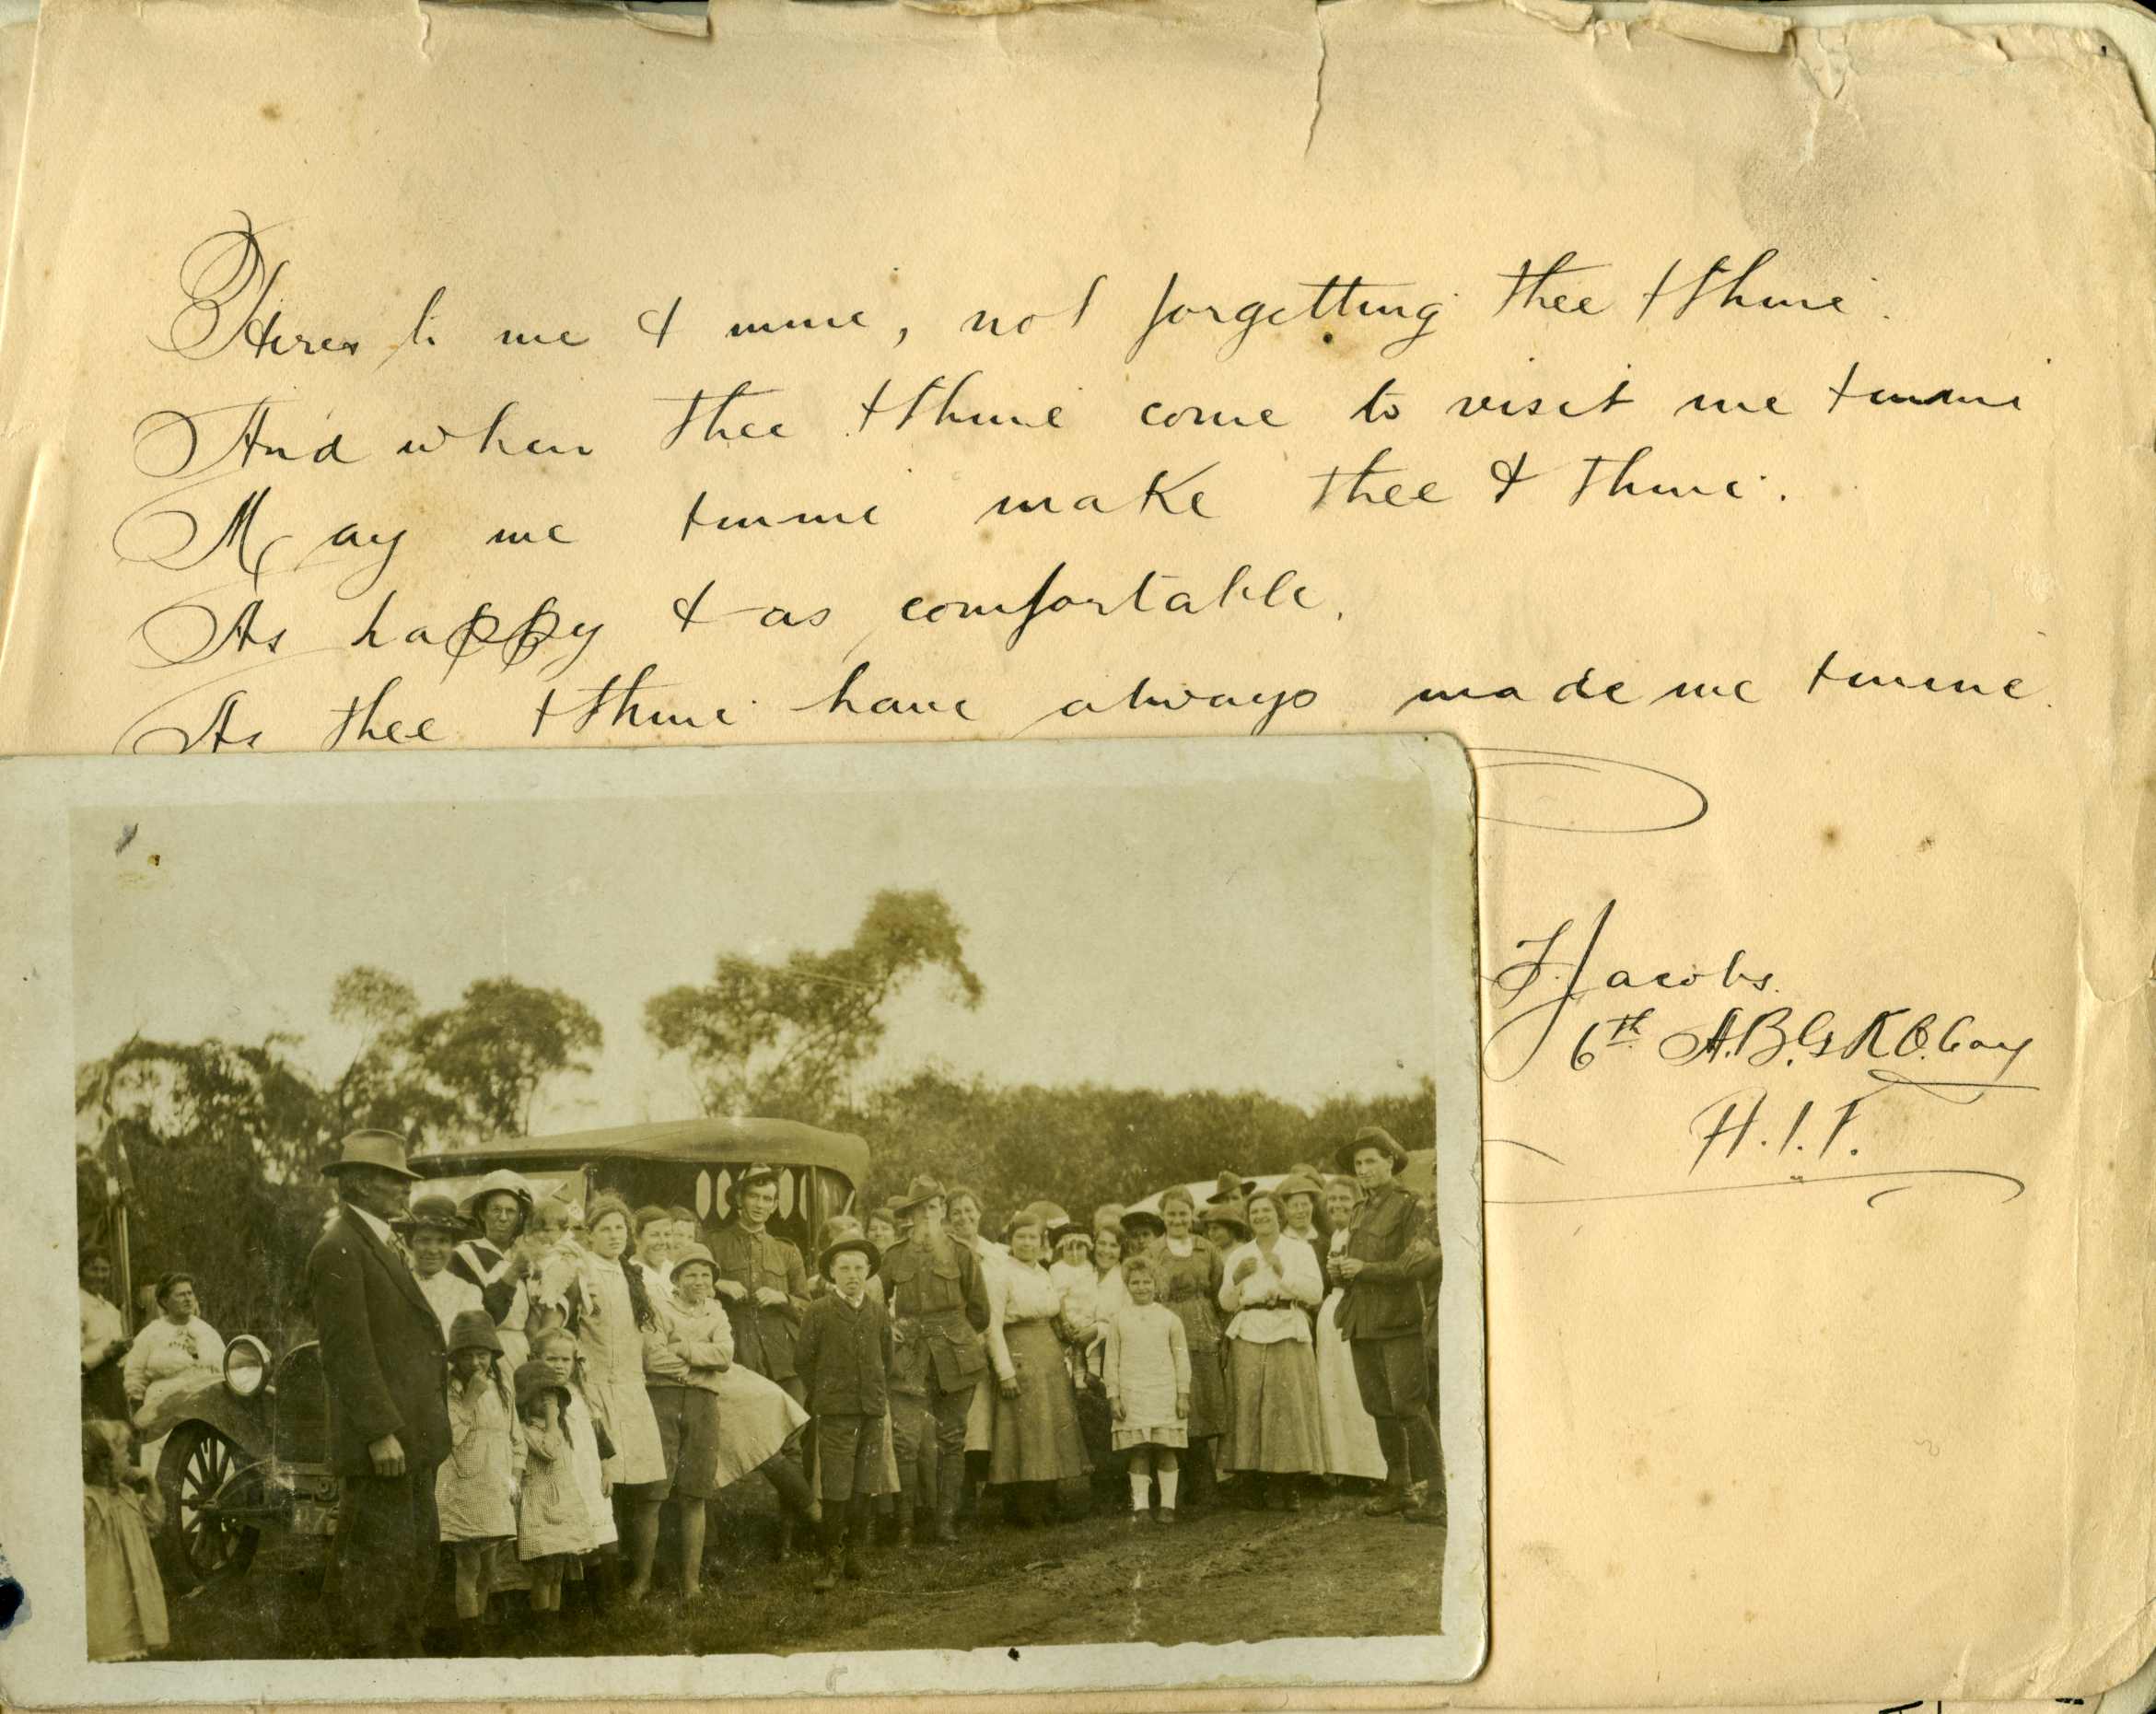 Heres to me & mine, not forgetting thee & thine.
And when thee & thine come to visit me & mine
May me & mine make thee & thine.
As happy & as comfortable.
As thee & thine have always made me & mine.
F. Jacobs.
6th A.B.G.R.O. Coy
A.I.F.